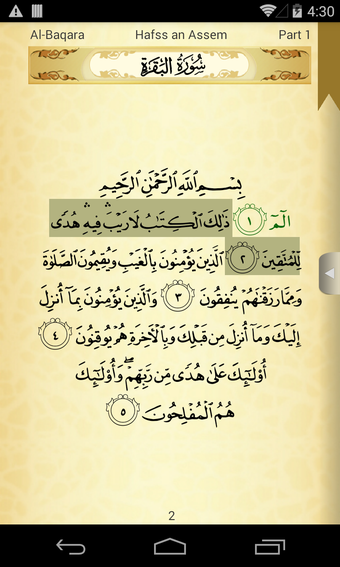 4:30
Al-Baqara Hafss an Assem Part 1
سُورَةُ البَقَرَةِ
بِسْمِ اللَّهِ الرَّحْمَٰنِ الرَّحِيمِ
الٓمٓ ١ ذَٰلِكَ الْكِتَابُ لَا رَيْبَ ۛ فِيهِ ۛ هُدًى
لِّلْمُتَّقِينَ ٢ الَّذِينَ يُؤْمِنُونَ بِالْغَيْبِ وَيُقِيمُونَ الصَّلَاةَ
وَمِمَّا رَزَقْنَاهُمْ يُنفِقُونَ ٣ وَالَّذِينَ يُؤْمِنُونَ بِمَا أُنزِلَ
إِلَيْكَ وَمَا أُنزِلَ مِن قَبْلِكَ وَبِالْآخِرَةِ هُمْ يُوقِنُونَ ٤
أُولَٰئِكَ عَلَىٰ هُدًى مِّن رَّبِّهِمْ ۖ وَأُولَٰئِكَ
هُمُ الْمُفْلِحُونَ ٥
2